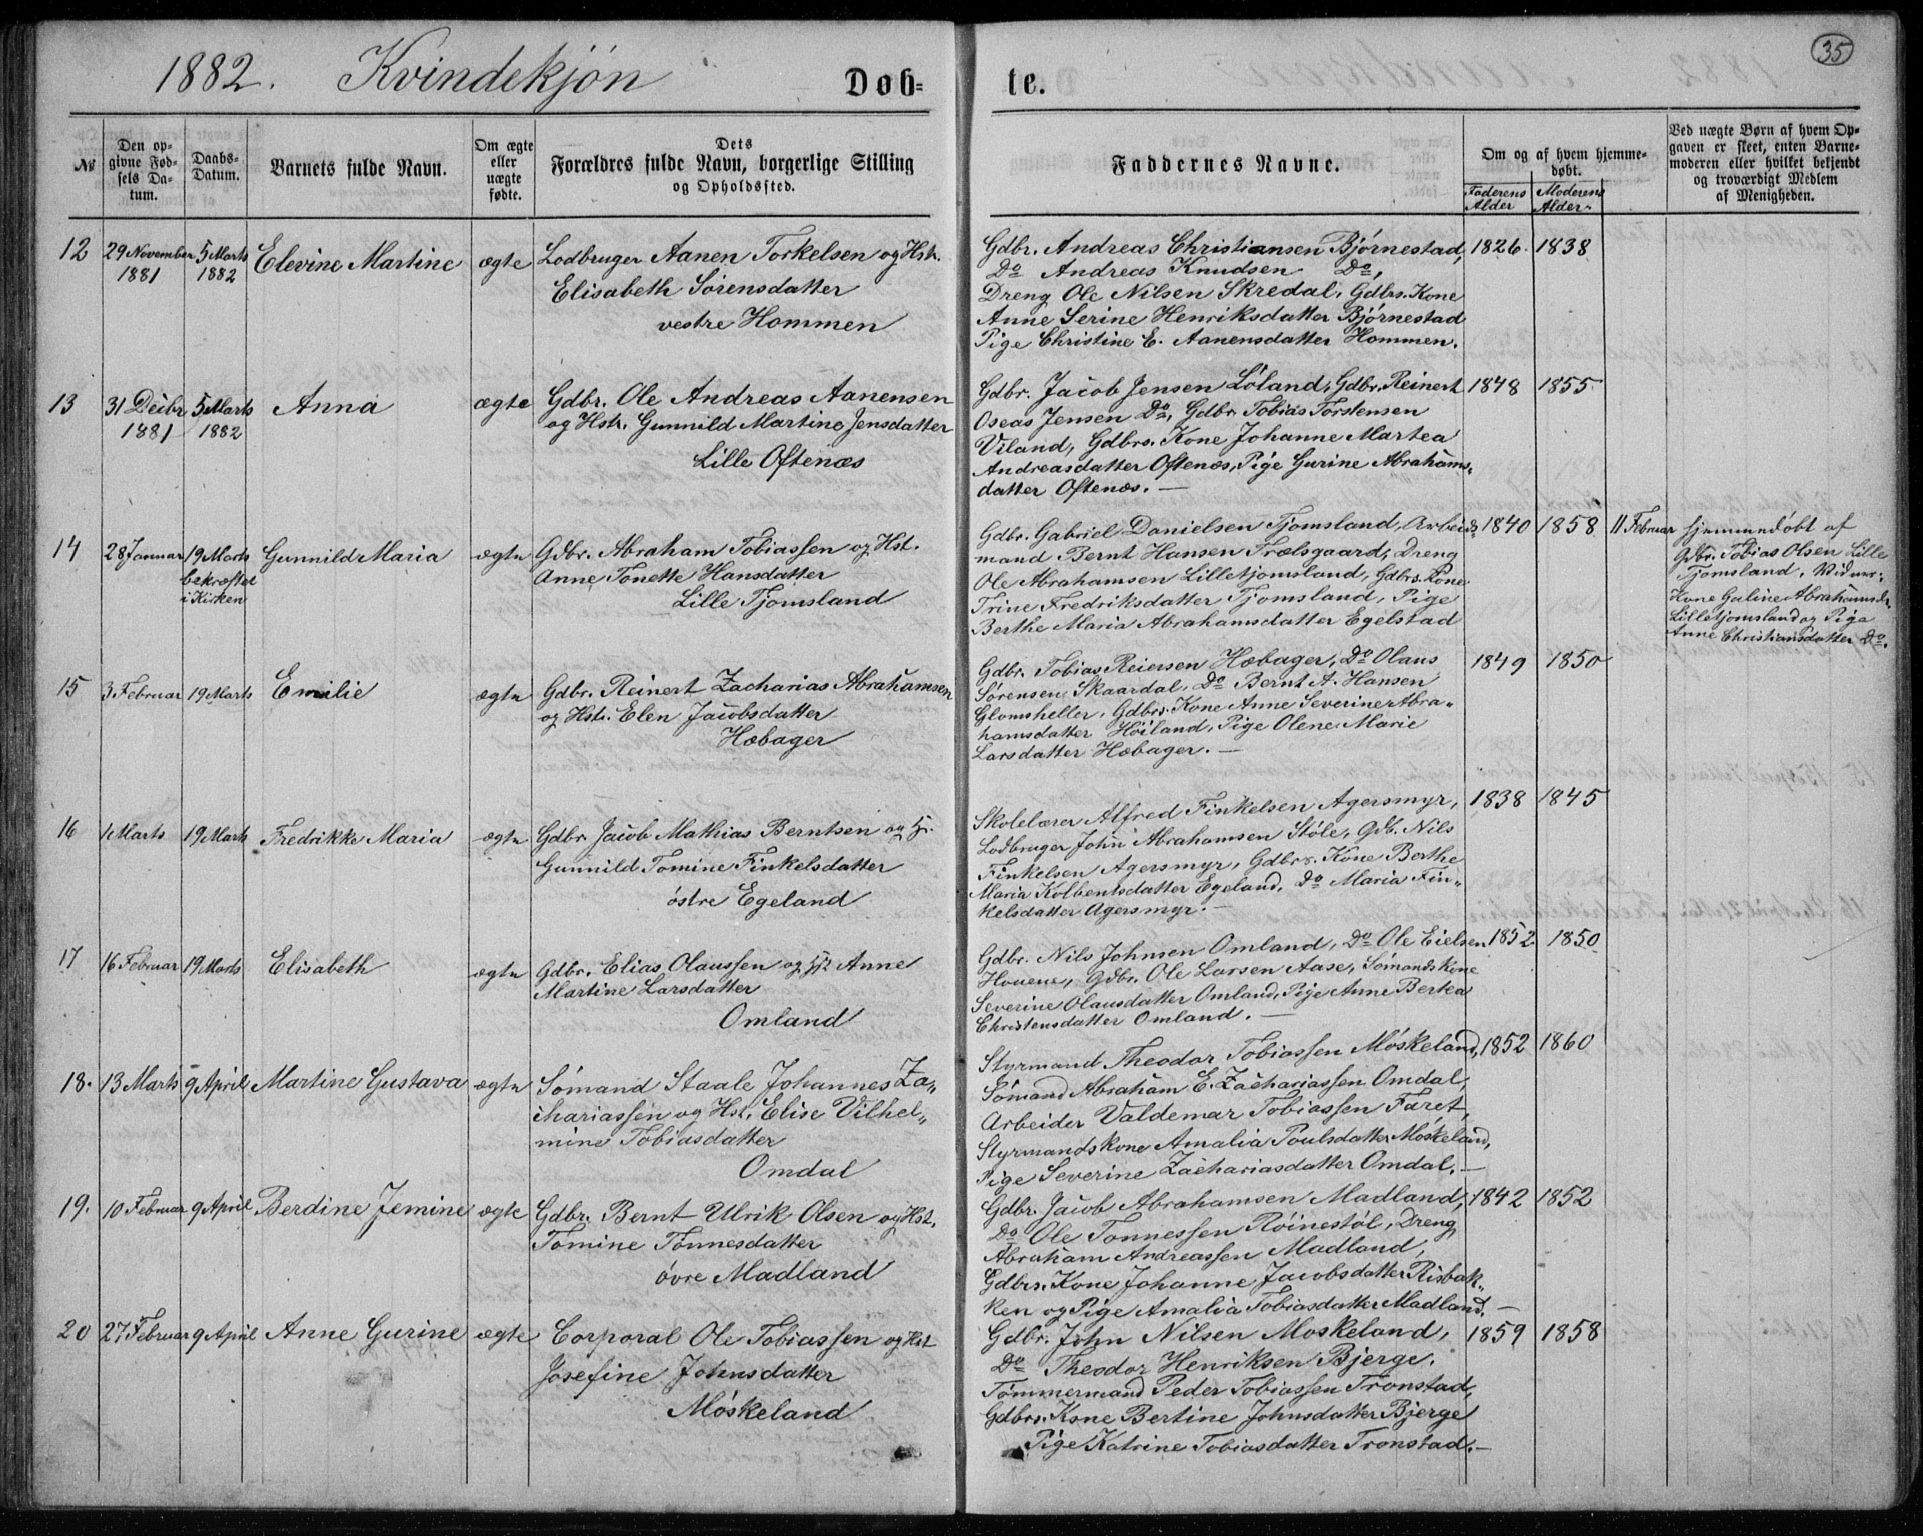 35
1882. Kvindekjøn Døb= te.
№
Den op-
givne Fød-
sels Da-
tum.
Daabs-
Datum.
Barnets fulde Navn.
Om ægte
eller
uægte
fødte.
Dets
Forældres fulde Navn, borgerlige Stilling
og Opholdssted.
Faddernes Navne.
Om og af hvem hjemme-
døbt.
Faderens
Alder
Moderens
Alder
Ved uægte Børn af hvem Op-
gaven er skeet, enten Barne-
moderen eller hvilket bekjendt
og troværdigt Medlem
af Menigheden.
12
29 November
1881
5 Marts
1882
Elevine Martine
ægte
Lodbruger Aanen Torkelsen og Hstr.
Elisabeth Sørensdatter
vestre Hommen
Gdbr. Andreas Christiansen Bjørnestad,
Do Andreas Knudsen Do,
Dreng Ole Nilsen Skredal, Gdbrs. Kone
Anne Serine Henriksdatter Bjørnestad
Pige Christine E. Aanensdatter Hommen.
1826. 1838
13
31 Decbr
1881
5 Marts
1882
Anna
ægte
Gdbr. Ole Andreas Aanensen
og Hstr. Gunnild Martine Jensdatter
Lille Oftenæs
Gdbr. Jacob Jensen Løland, Gdbr. Reinert
Oseas Jensen Do, Gdbr Tobias Torstensen
Viland, Gdbrs. Kone Johanne Martea
Andreasdatter Oftenæs, Pige Gurine Abrahams-
datter Oftenæs. —
1848 1855
14
28 Januar
19 Marts
bekræftet
i Kirken
Gunnild Maria
ægte
Gdbr. Abraham Tobiassen og Hst.
Anne Tonette Hansdatter
Lille Tjomsland
Gdbr. Gabriel Danielsen Tjomsland, Arbeids
mand Bernt Hansen Trælsgaard, Dreng
Ole Abrahamsen Lilletjomsland, Gdbrs. Kone
Trine Fredriksdatter Tjomsland, Pige
Berthe Maria Abrahamsdatter Egelstad
1840 1858 11 Februar
hjemmedøbt af
Gdbr. Tobias Olsen Lille
Tjomsland. Vidner:
Kone Galine Abrahamsdr.
Lilletjomsland og Pige
Anne Christiansdatter Do.
15
3. Februar
19 Marts
Emilie
ægte
Gdbr. Reinert Zacharias Abrahamsen
og Hstr. Elen Jacobsdatter
Hæbager
Gdbr. Tobias Reiersen Hæbager, Do Olaus
Sørensen Skaardal, Do Bernt A. Hansen
Glomsheller, Gdbrs. Kone Anne Severine Abra-
hamsdatter Høiland, Pige Olene Marie
Larsdatter Hæbager. —
1849 1850
16
1 Marts
19 Marts
Fredrikke Maria
ægte
Gdbr Jacob Mathias Berntsen og Hr.
Gunnild Tomine Finkelsdatter
østre Egeland
Skolelærer Alfred Finkelsen Agersmyr,
Lodbruger John Abrahamsen Støle, Gdb. Nils
Finkelsen Agersmyr, Gdbrs. Kone Berthe
Maria Kolbentsdatter Egeland, Do Maria Fin-
kelsdatter Agersmyr. —
1838 1845
17
16 Februar
19 Marts
Elisabeth
ægte
Gdbr. Elias Olaussen og Hst Anne
Martine Larsdatter
Omland
Gdbr. Nils Johnsen Omland, Do Ole Eielsen
Houene, Gdbr. Ole Larsen Aase, Sømandskone
Severine Olausdatter Omland, Pige Anne Bertea
Christensdatter Omland. —
1852 1850
18.
13 Marts
9 April
Martine Gustava
ægte
Sømand Staale Johannes Za-
chariassen og Hst. Elise Vilhel-
mine Tobiasdatter
Omdal
Styrmand Theodor Tobiassen Møskeland,
Sømand Abraham E. Zachariassen Omdal,
Arbeider Valdemar Tobiassen Faret,
Styrmandskone Amalia Poulsdatter Møskeland,
Pige Severine Zachariasdatter Omdal. —
1852 1860
19.
10 Februar
9 April
Berdine Jemine
ægte
Gdbr. Bernt Ulrik Olsen og Hst.
Tomine Tønnesdatter
øvre Madland
Gdbr. Jacob Abrahamsen Madland,
Do Ole Tønnessen Røinestøl, Dreng
Abraham Andreassen Madland,
Gdbrs. Kone Johanne Jacobsdatter Risbak-
ken og Pige Amalia Tobiasdatter Madland. —
1842 1852
20
27 Februar
9 April
Anne Gurine
ægte
Corporal Ole Tobiassen og Hst
Josefine Johnsdatter
Møskeland
Gdbr. John Nilsen Moskeland,
Do Theodor Henriksen Bjerge.
Tømmermand Peder Tobiassen Tronstad,
Gdbrs. Kone Bertine Johnsdatter Bjerge
Pige Katrine Tobiasdatter Tronstad. —
1859 1858